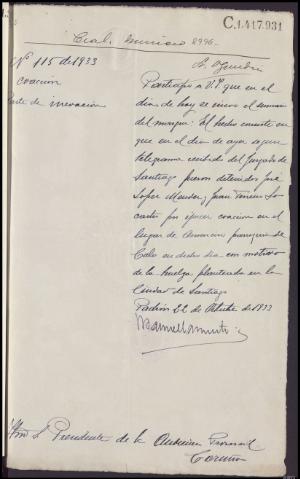 C.1.417.931
8996
Nº 115 de 1933
coacción
Parte de incoación
Participo a V.I que en el
dia de hoy se incoo el sumario
del margen: El hecho consiste en
que en el dia de ayer segun
telegrama recibido del Juzgado de
Santiago fueron detenidos José
Lopez Mendez y Juan
por ejercer coaccion en el
lugar de parroquia de
Calo en dicho dia con motivo
de la huelga planteada en la
Ciudad de Santiago
Padrón 22 de Octubre de 1933
Ilmo S. Presidente de la Audiencia Provincial
Coruña